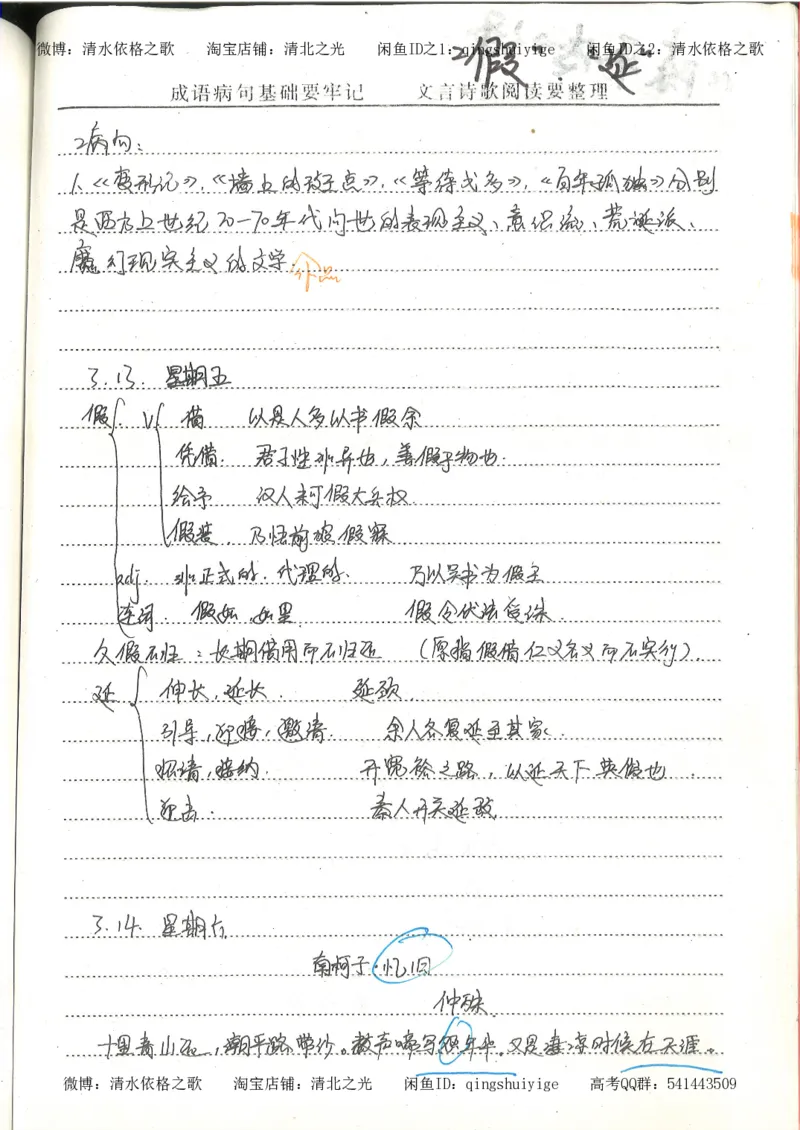 微博：清水依格之歌 淘宝店铺：清北之光 闲鱼ID之1：qingshuiyige 闲鱼ID之2：清水依格之歌
2假 . 延
成语病句基础要牢记 文言诗歌阅读要整理
2病句：
1、《变形记》,《墙上的斑点》,《等待戈多》,《百年孤独》分别
是西方上世纪20—70年代问世的表现主义、意识流、荒诞派、
魔幻现实主义的文学.作品
3.13. 星期五
假 v 借 以是人多以书假余
凭借. 君子性非异也,善假于物也.
给予 汉人未可假大兵权
假装. 乃悟前狼假寐
adj. 非正式的.代理的. 乃以吴叔为假王
连词. 假如,如果 假令伏法受诛.
久假不归：长期借用而不归还 (原指假借仁义名义而不实行).
延 伸长,延长. 延颈.
引导,迎接,邀请. 余人各复延至其家.
招请,接纳. 开宽裕之路,以延天下英俊也.
迎击. 秦人开关延敌
3.14. 星期六
南柯子·忆旧
仲殊.
十里青山远,潮平路带沙。数声啼鸟怨年华.又是凄凉时候在天涯。
微博：清水依格之歌 淘宝店铺：清北之光 闲鱼ID：qingshuiyige 高考QQ群：541443509